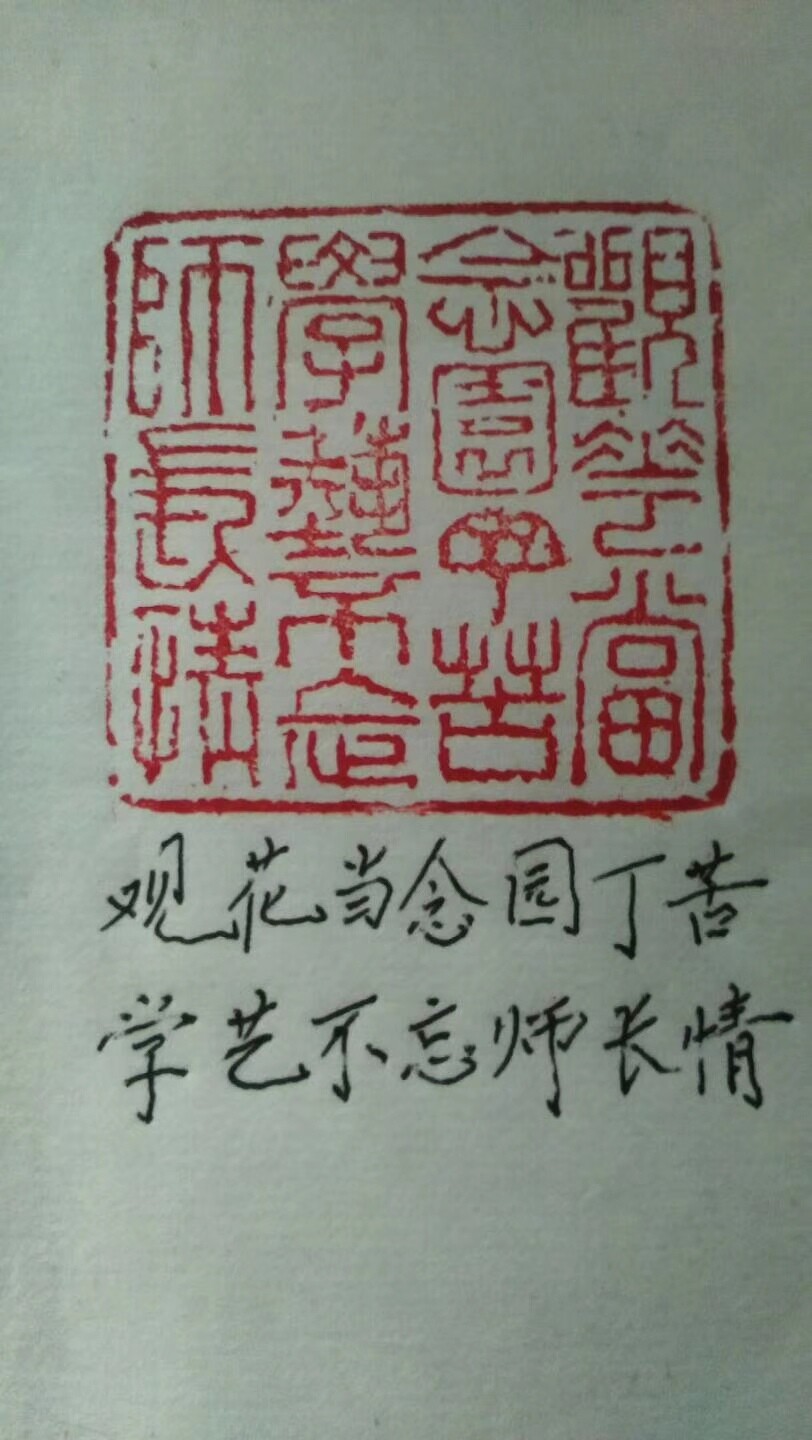 觀花當
念園丁苦
學藝不忘
師長情
观花当念园丁苦
学艺不忘师长情